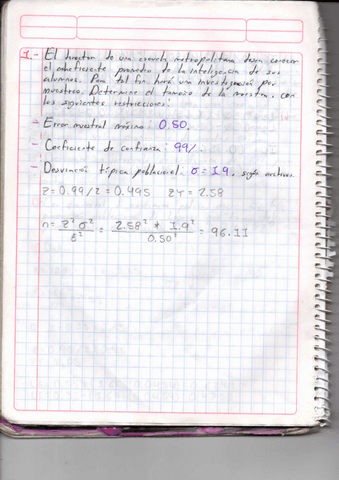 1.- El director de una escuela metropolitana desea conocer
el coheficiente promedio de la inteligencia de sus
alumnos. Para tal fin hará una investigación por
muestreo. Determine el tamaño de la muestra, con
las siguientes restricciones:
- Error muestral máximo: 0.50.
- Coeficiente de confianza: 99%.
- Desviación típica poblacional: σ = 1.9, según archivos.
Z = 0.99/2 = 0.495 ZT = 2.58
n = Z² σ² / ε² = 2.58² * 1.9² / 0.50² = 96.11